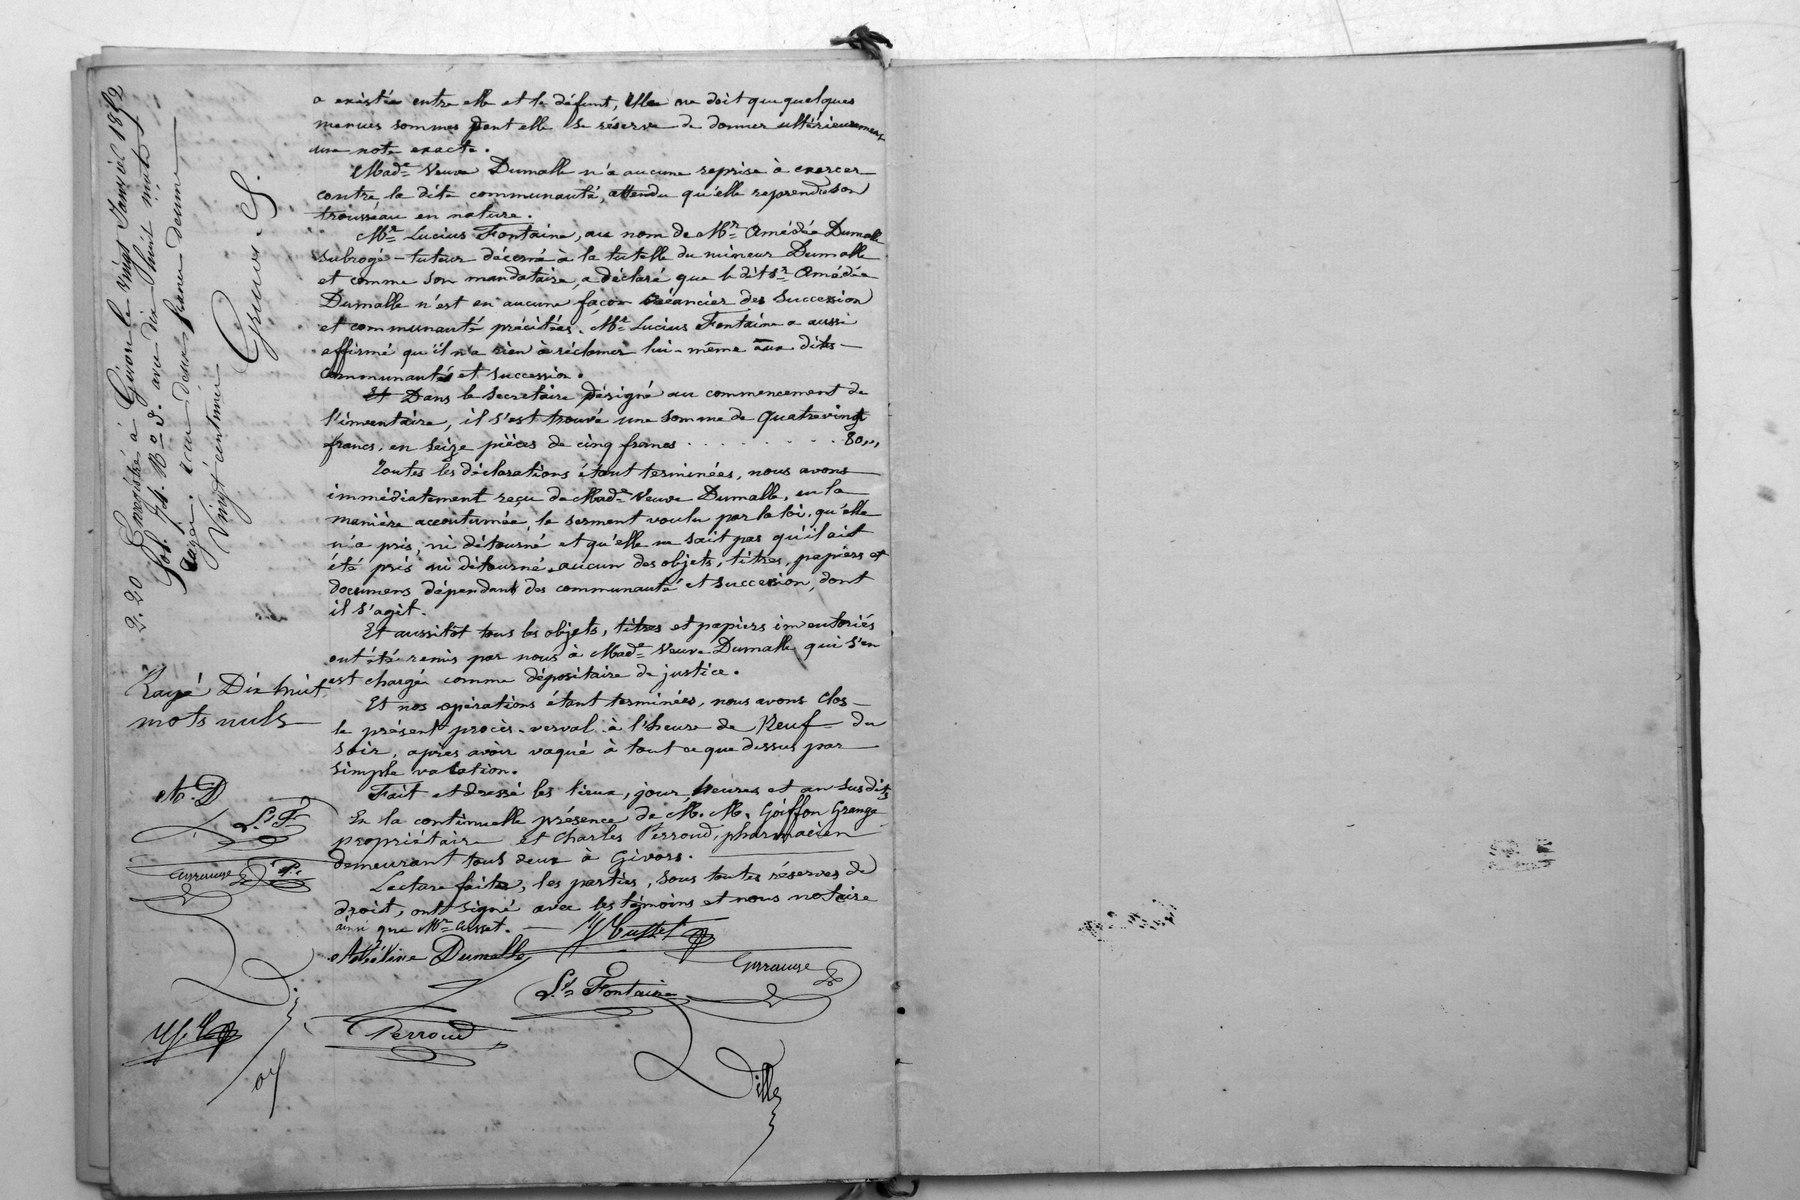 a existée entre elle et le défunt, Elle ne doit que quelques
menues sommes dont elle se réserve de donner ultérieurement
une note exacte.
Made Veuve Dumalle n'a aucune reprise à exercer
contre la dite communauté, attendu qu'elle reprend son
trousseau en nature.
Mr Lucius Fontaine, au nom de Mr Amédée Dumalle
subrogé-tuteur décerné à la tutelle du mineur Dumalle
et comme son mandataire, a déclaré que le dit Sr Amédée
Dumalle n'est en aucune façon créancier des succession
et communauté précitées. Mr Lucius Fontaine a aussi
affirmé qu'il n'a rien à réclamer lui-même aux dites
communauté et succession.
Et Dans le secretaire désigné au commencement de
l'inventaire, il s'est trouvé une somme de quatrevingt
francs, en seize pièces de cinq francs . . . . . . . . 80,,
Toutes les déclarations étant terminées, nous avons
immédiatement reçu de Made Veuve Dumalle, en la
manière accoutumée, le serment voulu par la loi, qu'elle
n'a pris, ni détourné et qu'elle ne sait pas qu'il ait
été pris ni détourné aucun des objets, titres, papiers et
documens dépendant des communauté et succession, dont
il s'agit.
Et aussitot tous les objets, titres et papiers inventoriés
ont été remis par nous à Made Veuve Dumalle qui s'en
est chargée comme dépositaire de justice.
Et nos opérations étant terminées, nous avons clos
le présent procès-verval à l'heure de Neuf du
soir, après avoir vaqué à tout ce que dessus par
simple vacation.
Fait et dressé les lieux, jour, heures et an susdits
En la continuelle présence de M. M. Goiffon Grange
propriétaire et Charles Perroud, pharmacien
demeurant tous deux à Givors.
Lecture faite, les parties, sous toutes réserves de
droit, ont signé avec les témoins et nous notaire
ainsi que Mr
Dumalle
Ls Fontaine
Perroud
Dille
2.20 Enregistré à Givors le vingt Janvier 1852
fol. 74. Ro 3. avec dix huit
reçu deux francs
Vingt centimes
Rayé Dix huit
mots nuls
N. D
L. F